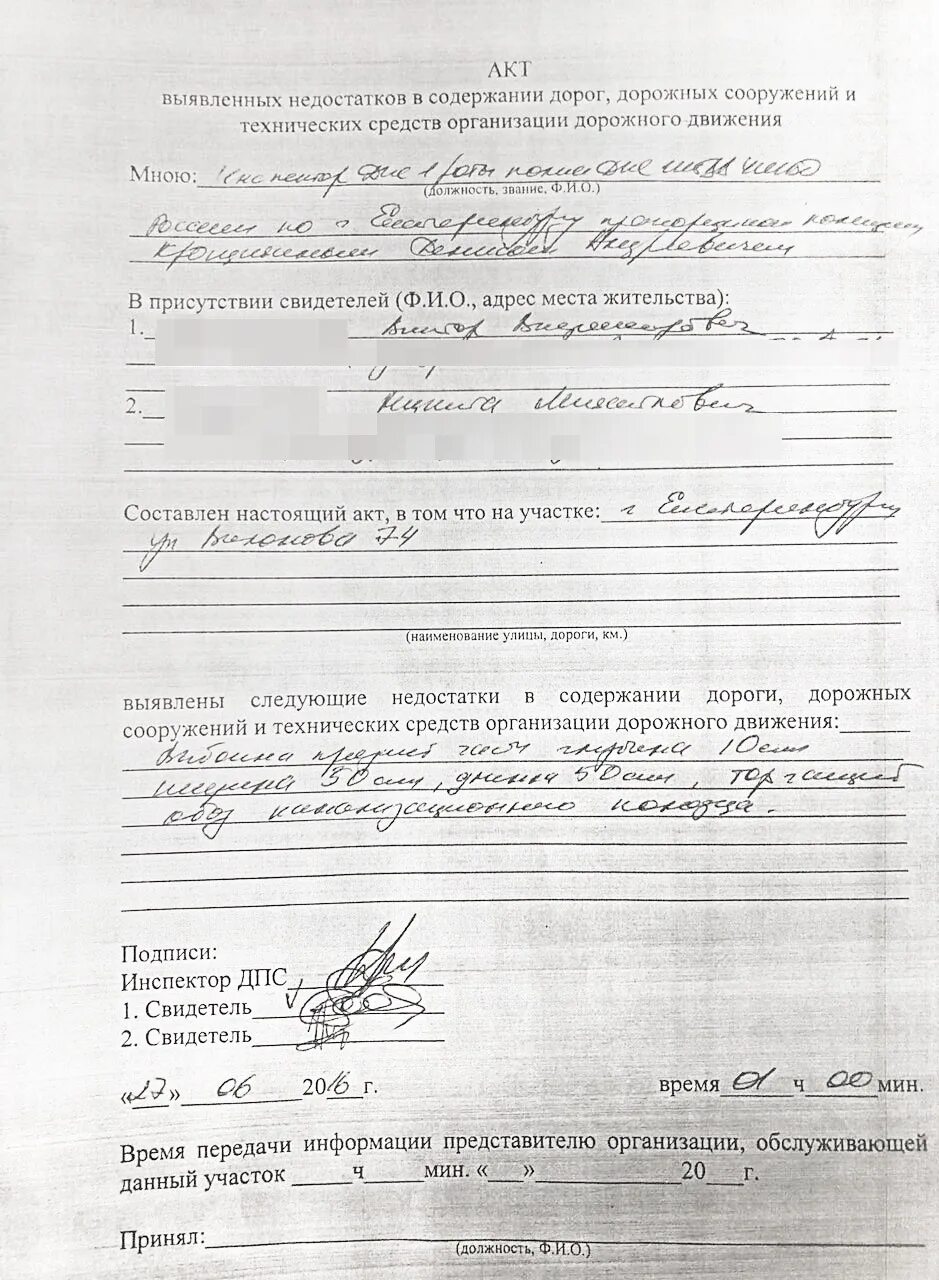 АКТ
выявленных недостатков в содержании дорог, дорожных сооружений и
технических средств организации дорожного движения
Мною: Инспектор ДПС 1 роты полка ДПС
(должность, звание, Ф.И.О.)
России по г Екатеринбургу прапорщиком полиции
Денисом Андреевичем
В присутствии свидетелей (Ф.И.О., адрес места жительства):
1. Виктор Владимирович
2. Никита Михайлович
Составлен настоящий акт, в том что на участке: г Екатеринбург
ул 74
(наименование улицы, дороги, км.)
выявлены следующие недостатки в содержании дороги, дорожных
сооружений и технических средств организации дорожного движения:
Выбоина проезжей части глубина 10 см
ширина 50 см, длинна 50 см, торчащий
обод канализационного колодца.
Подписи:
Инспектор ДПС
1. Свидетель
2. Свидетель
«27» 06 2016 г. время 01 ч 00 мин.
Время передачи информации представителю организации, обслуживающей
данный участок ч мин. « » 20 г.
Принял:
(должность, Ф.И.О.)